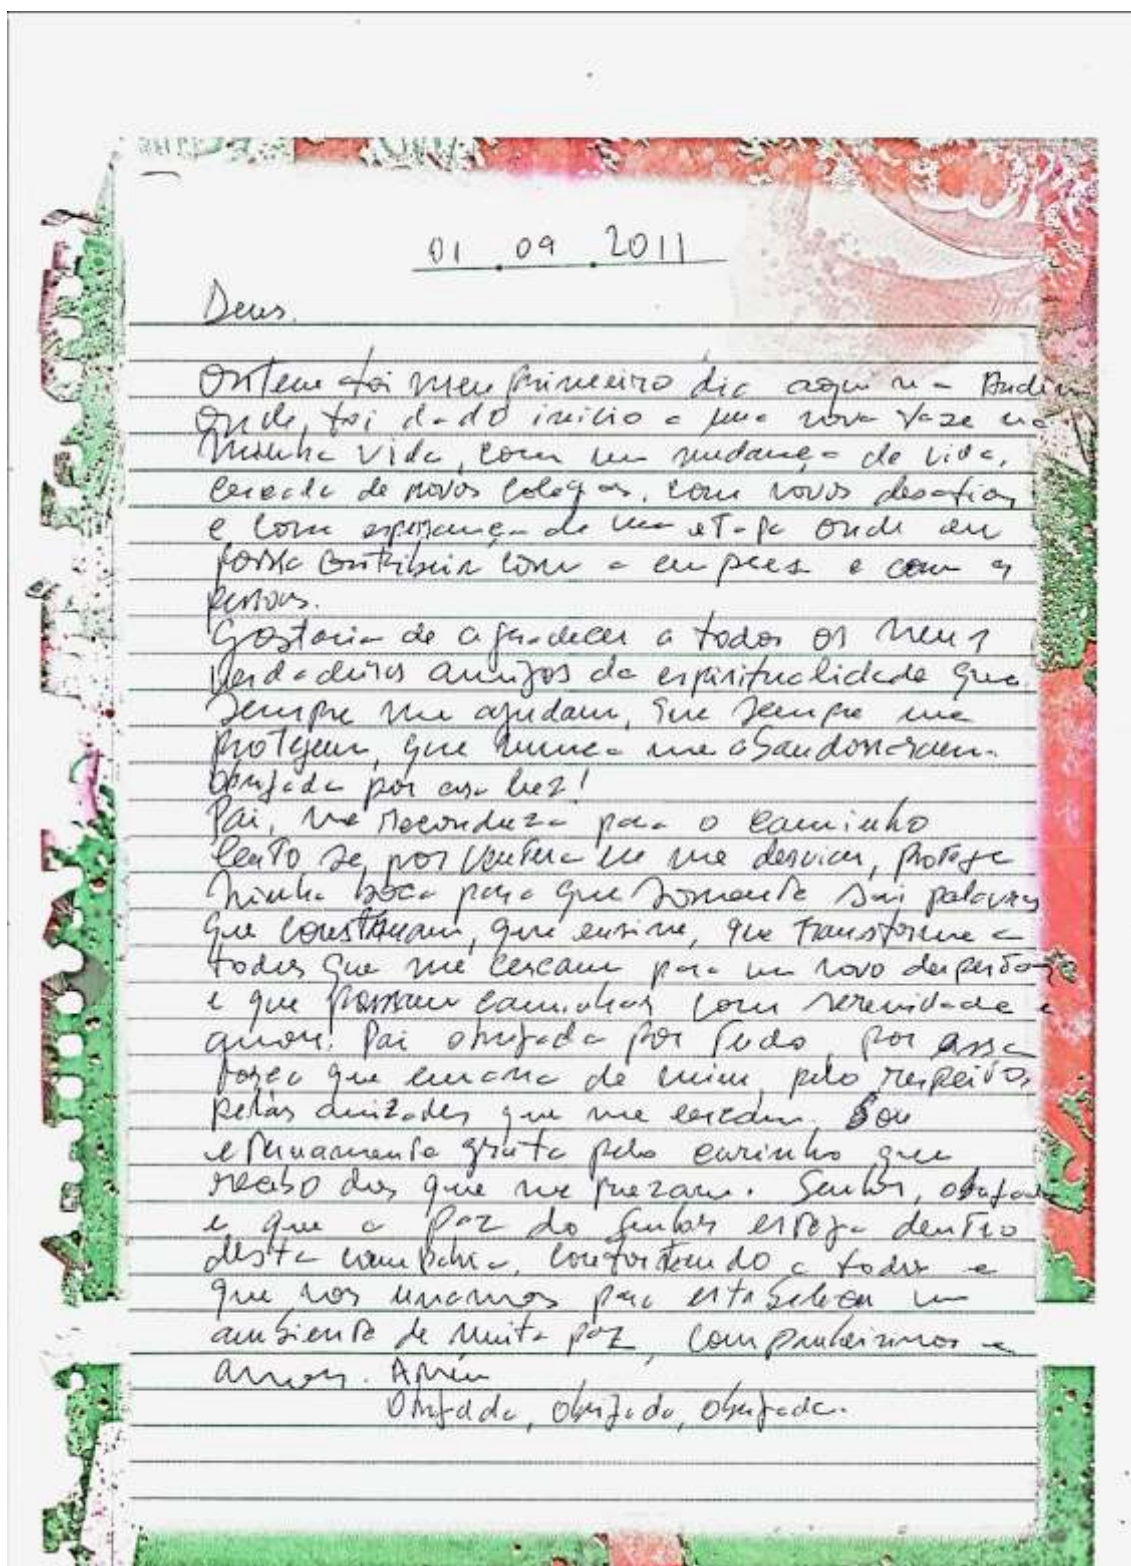 01 . 09 . 2011
Deus.
Ontem foi meu primeiro dia aqui na
onde, foi dado início a uma nova faze na
minha vida, com um mudança de vida,
cercada de novos colegas, com novos desafios
e com esperança de uma etapa onde eu
possa contribuir com a empresa e com as
pessoas.
Gostaria de agradecer a todos os meus
verdadeiros amigos da espiritualidade que
sempre me ajudam, que sempre me
protegem, que nunca me abandonaram.
Obrigada por essa luz!
Pai, me reconduza para o caminho
certo se, por ventura me desviar, proteja
minha boca para que somente sai palavras
que construam, que ensine, que transforme a
todos que me cercam para um novo despertar
e que possam caminhar com serenidade e
amor. Pai obrigada por tudo, por essa
força que emana de mim, pelo respeito,
pelas amizades que me cercam. Sou
eternamente grata pelo carinho que
recebo dos que me prezam. Senhor, obrigada
e que a paz do Senhor esteja dentro
desta companhia, confortando a todos e
que nos unamos para estabelecer um
ambiente de muita paz, companheirismos e
amor. Amém
Obrigada, obrigada, obrigada.